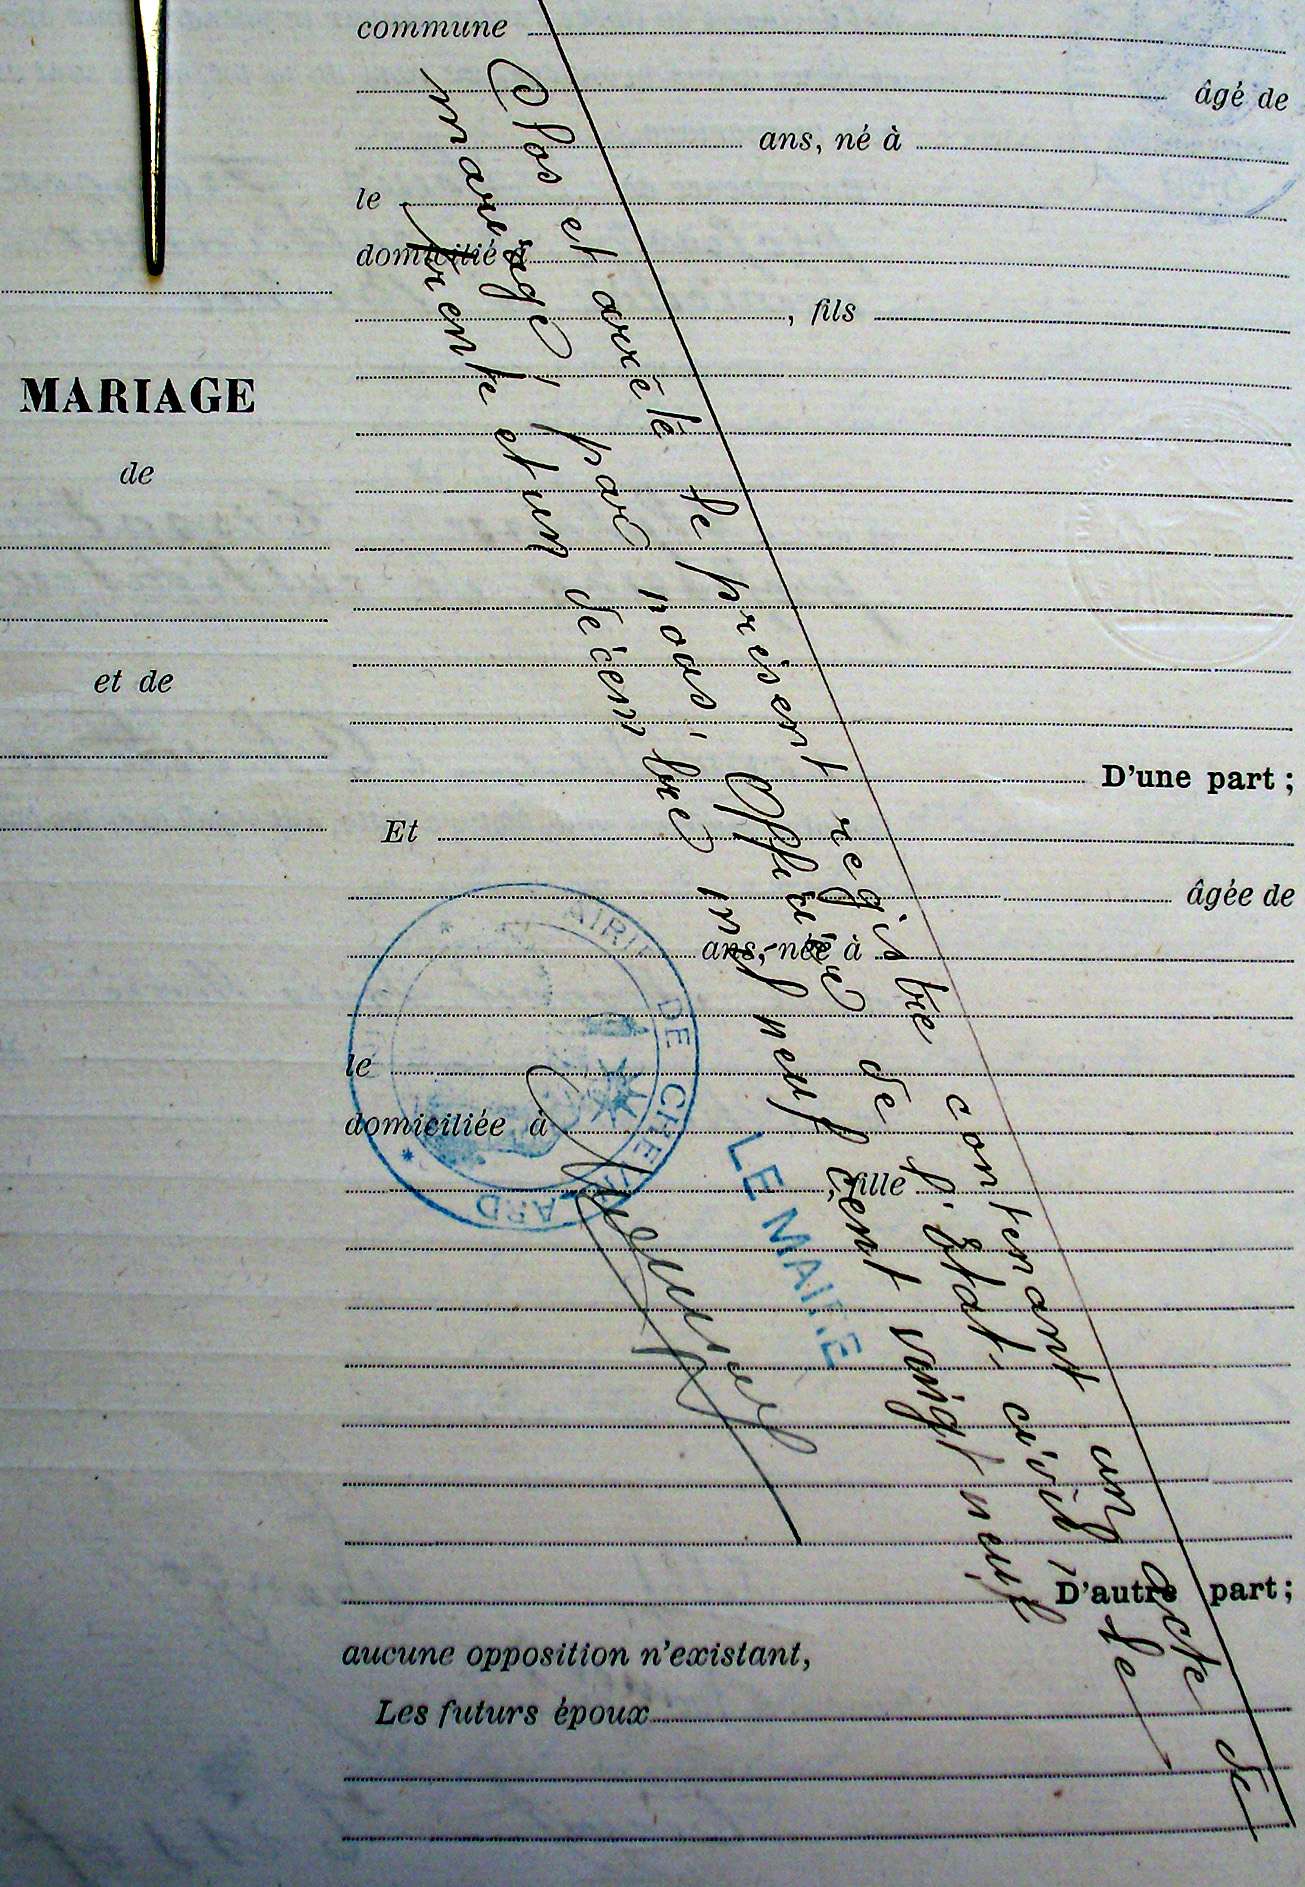 commune
âgé de
ans, né à
le
domicilié à
, fils
MARIAGE
de
et de
D'une part ;
Et
âgée de
ans, née à
le
domiciliée à
, fille
D'autre part ;
aucune opposition n'existant,
Les futurs époux
Clos et arrêté le présent registre contenant un acte de
mariage, par nous, Officier de l'État-civil, le
trente et un décembre mil neuf cent vingt neuf
LE MAIRE
MAIRIE DE CHEVILLARD